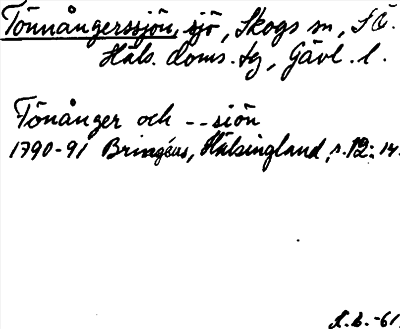 Tönnångerssjön, sjö, Skogs sn, S Ö.
Häls. doms. tg, Gävl. l.
Tönånger och --siön
1790-91 Bringéus, Hälsingland, s. 12: 14.
S.B. -61